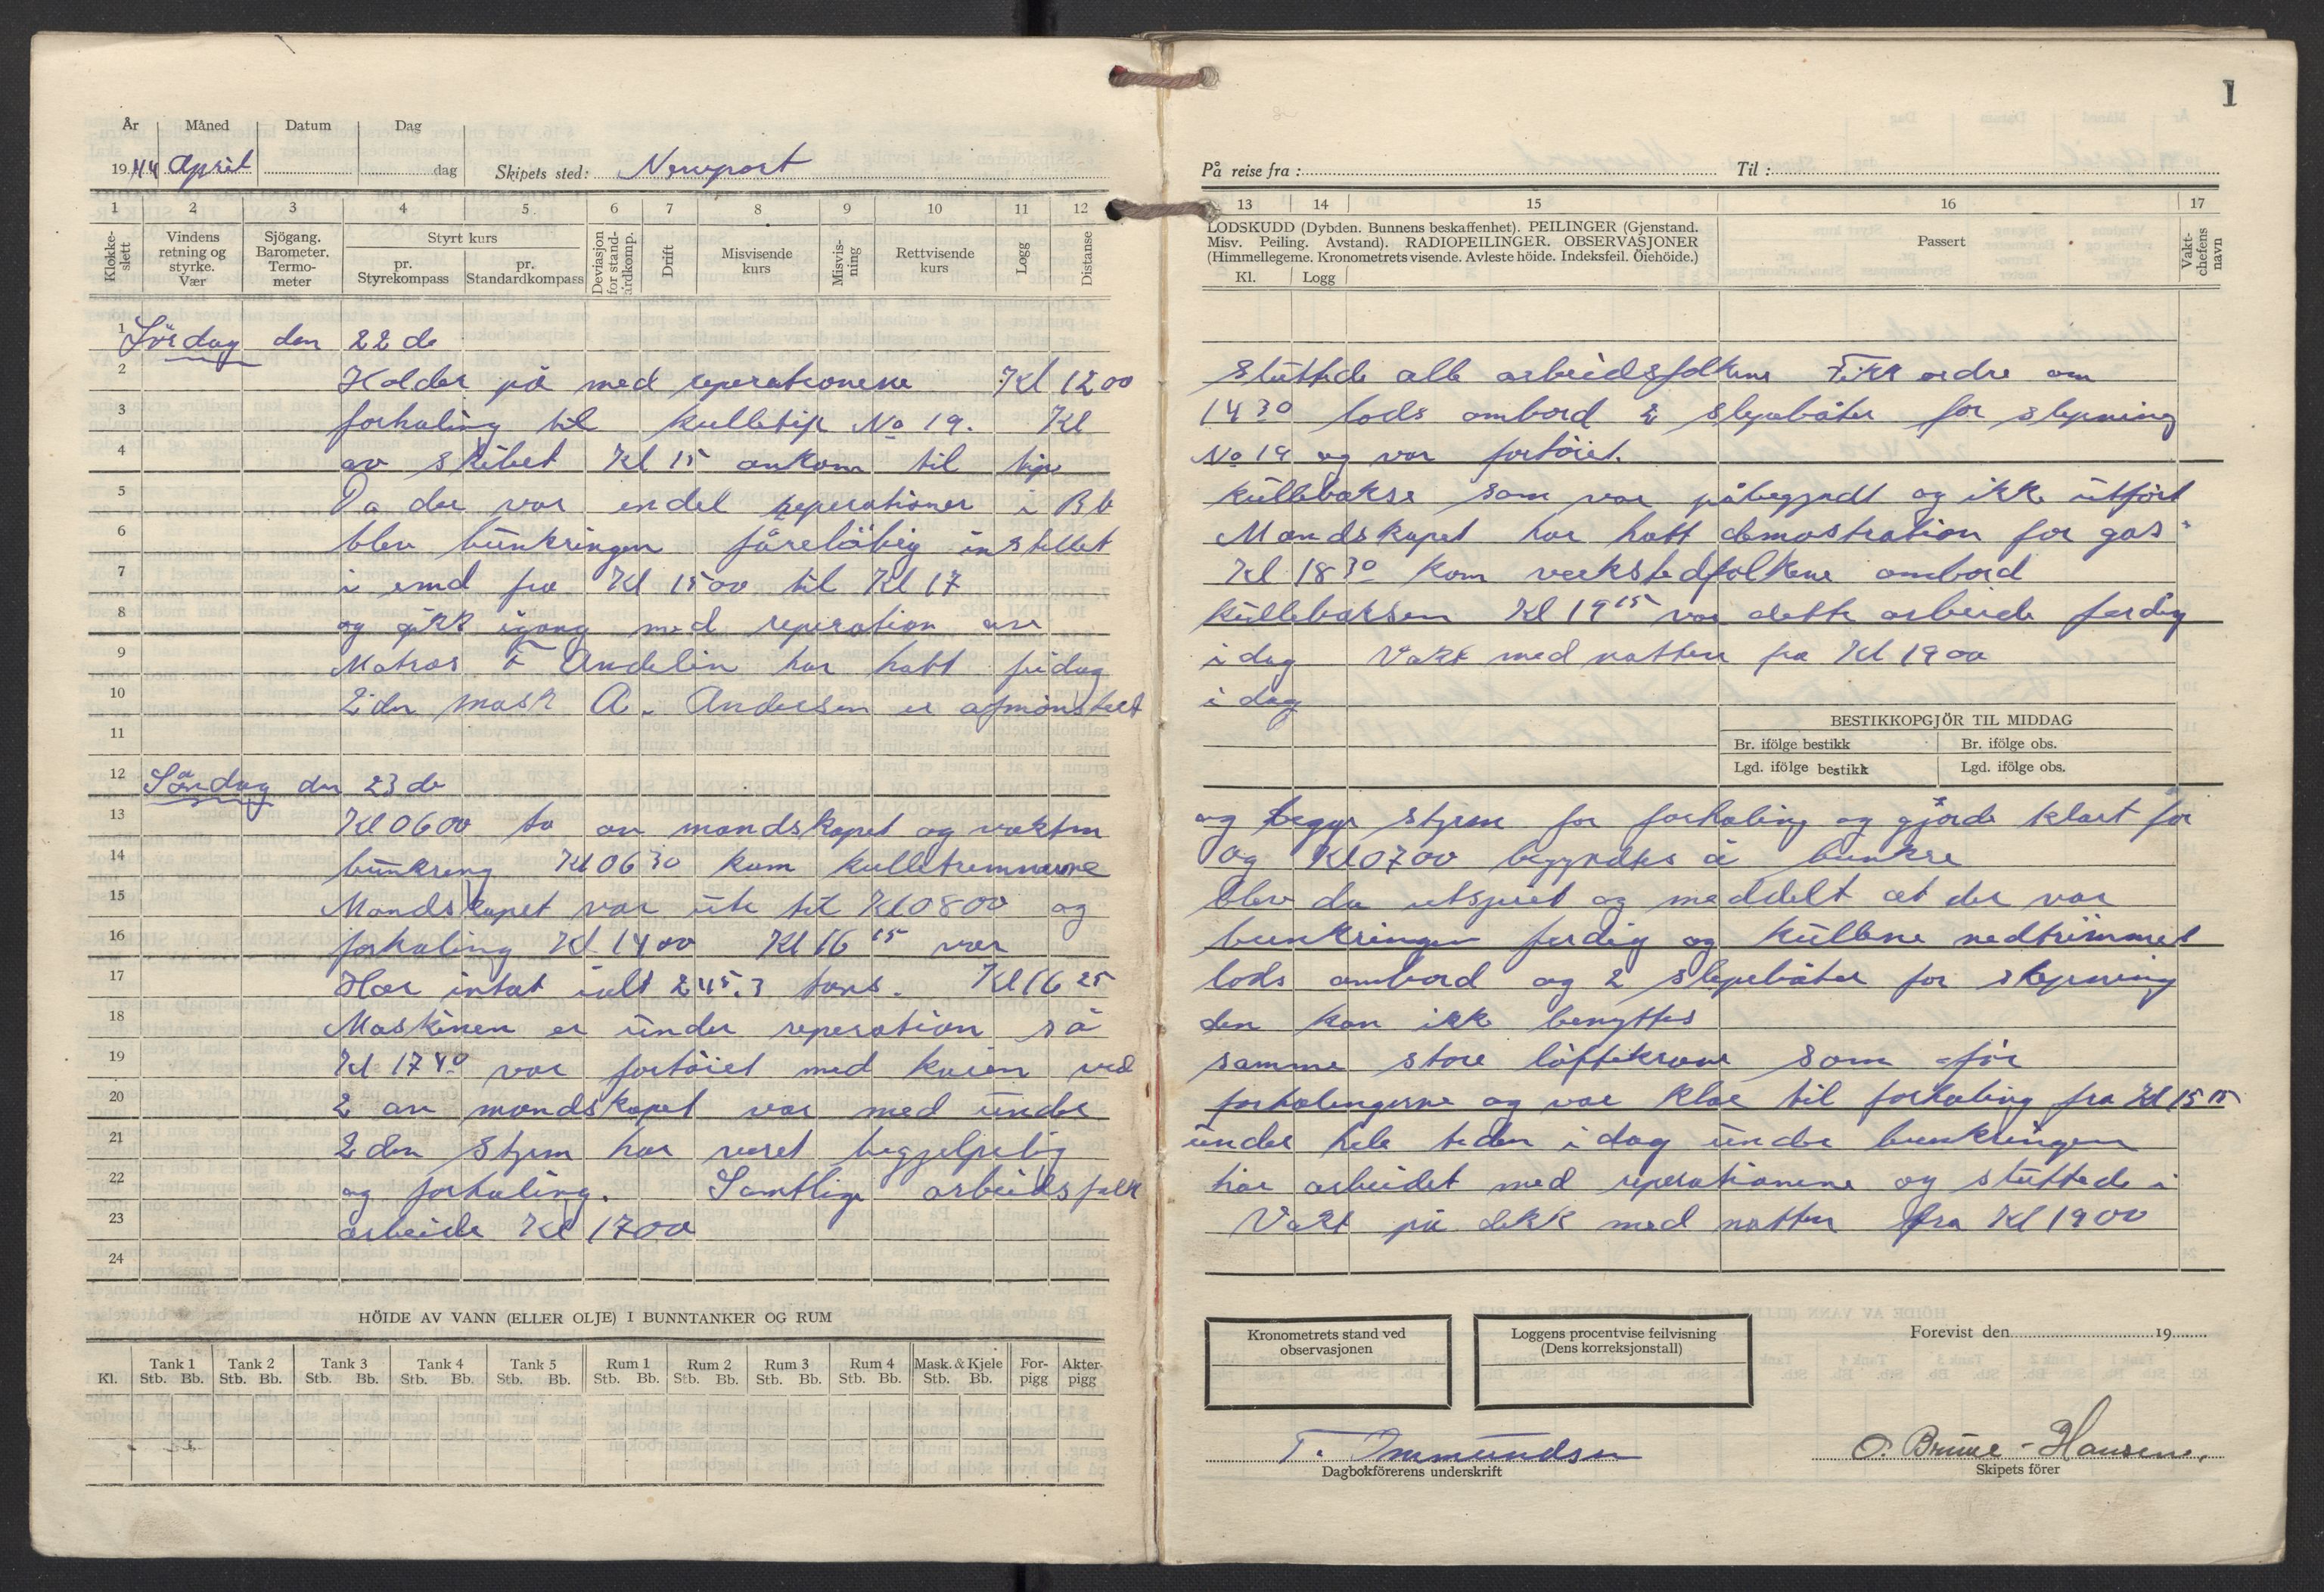 1
År Måned Datum Dag
1944 April dag Skipets sted: Newport
På reise fra: Til:
1 2 3 4 5 6 7 8 9 10 11 12
13 14 15 16 17
Klokkeslett
Vindens retning og styrke. Vær
Sjögang. Barometer. Termometer
Styrt kurs
pr. Styrekompass
pr. Standardkompass
Deviasjon for standardkomp.
Drift
Misvisende kurs
Misvisning
Rettvisende kurs
Logg
Distanse
LODSKUDD (Dybden. Bunnens beskaffenhet). PEILINGER (Gjenstand.
Misv. Peiling. Avstand). RADIOPEILINGER. OBSERVASJONER
(Himmellegeme. Kronometrets visende. Avleste höide. Indeksfeil. Öiehöide.)
Kl. Logg
Passert
Vaktchefens navn
1 Lördag den 22 de
2 Holder på med reperationene Kl 1200 sluttede alle arbeidsfolkene Fikk ordre om
3 forhaling til kulletip No 19. Kl 1430 lods ombord 2 slepebåter for slepning
4 av skibet Kl 15 ankom til tip No 19 og var fortöiet.
5 Da der var endel reperationer i Bb kullebokse som var påbegyndt og ikke utfört
6 blev bunkringen foreløbig instillet Mandskapet har hatt demostration for gas
7 i land fra Kl 1500 til Kl 17 Kl 1830 kom verkstedfolkene ombord
8 og gikk igang med reperation av kulleboksen Kl 1915 var dette arbeide ferdig
9 Matros Andelin har hatt fridag i dag Vakt med natten fra Kl 1900
10 2den mask A. Andersen er afmönstret i dag
11
BESTIKKOPGJÖR TIL MIDDAG
Br. ifölge bestikk Br. ifölge obs.
Lgd. ifölge bestikk Lgd. ifölge obs.
12 Söndag den 23 de
13 Kl 0600 to av mandskapet og vakten og begge styrm for forhaling og gjorde klart for
14 bunkring Kl 0630 kom kulletrimmerne og Kl 0700 begyndtes å bunkre
15 Mandskapet var ute til Kl 0800 og blev da utspurt og meddelt at der var
16 forhaling Kl 1400 Kl 1615 var bunkringen ferdig og kullene nedtrimmet
17 Har intat ialt 245.3 tons. Kl 1625 lods ombord og 2 slepebåter for slepning
18 Maskinen er under reperation så den kan ikke benyttes
19 Kl 1740 var fortöiet med kaien ved samme store löftekrane som för
20 2 av mandskapet var med under forhalingerne og var klar til forhaling fra Kl 1515
21 2den styrm har veret under hele tiden i dag under bunkringen
22 og forhaling. Samtlige arbeidsfolk har arbeidet med reperationene og sluttede i
23 arbeide Kl 1700 Vakt på dekk med natten fra Kl 1900
24
HÖIDE AV VANN (ELLER OLJE) I BUNNTANKER OG RUM
Kl. Tank 1 Tank 2 Tank 3 Tank 4 Tank 5 Rum 1 Rum 2 Rum 3 Rum 4 Mask. & Kjele Forpigg Akterpigg
Stb. Bb. Stb. Bb. Stb. Bb. Stb. Bb. Stb. Bb. Stb. Bb. Stb. Bb. Stb. Bb. Stb. Bb. Stb. Bb.
Kronometrets stand ved observasjonen
Loggens procentvise feilvisning (Dens korreksjonstall)
Forevist den 19
T. Ommundsen
Dagbokförerens underskrift
O. Brune-Hansen.
Skipets förer